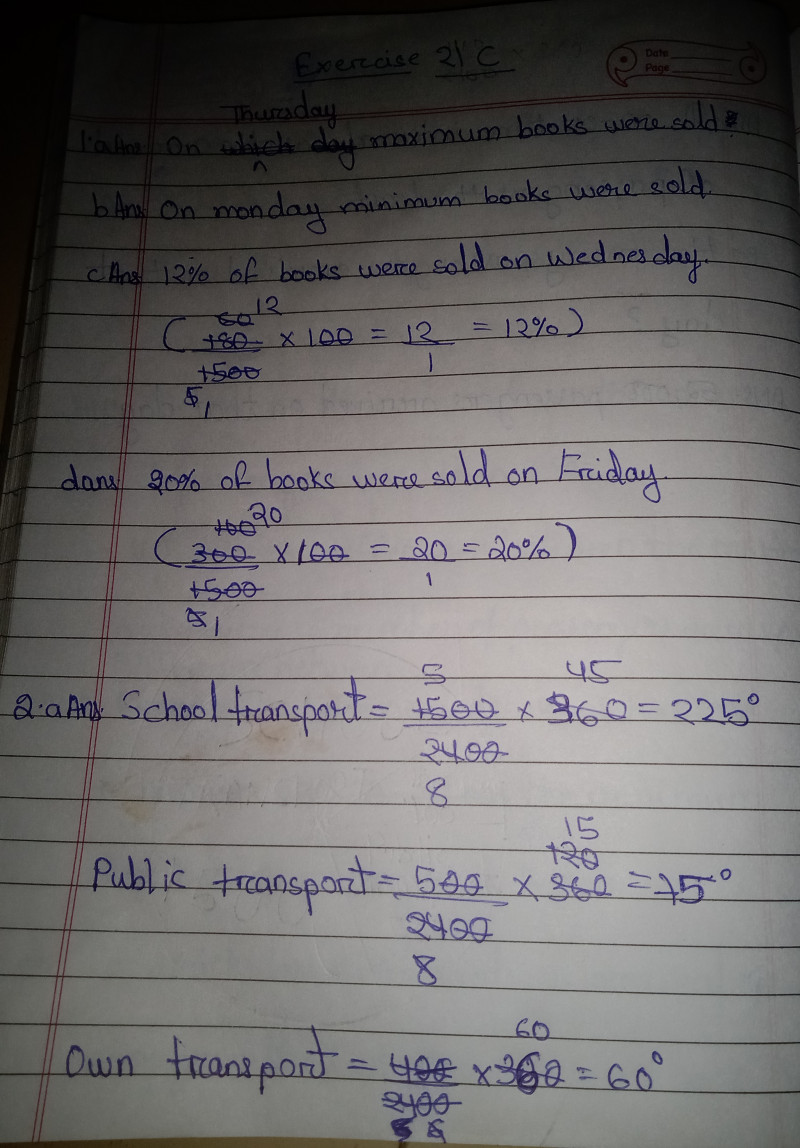 Exercise 21 C
Date
Page
Thursday
1.a Ans On which day maximum books were sold.
^
b Ans On monday minimum books were sold.
c Ans 12% of books were sold on Wednesday.
60 12
( 180 × 100 = 12 = 12% )
1500 1
5 1
d ans 20% of books were sold on Friday.
100 20
( 300 × 100 = 20 = 20% )
1500 1
5 1
5 45
2.a Ans. School transport = 1500 × 360 = 225°
2400
8
15
120
Public transport = 500 × 360 = 75°
2400
8
60
Own transport = 400 × 360 = 60°
2400